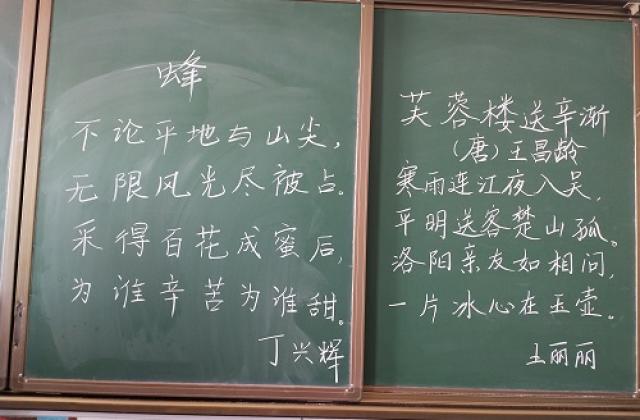 蜂
不论平地与山尖，
无限风光尽被占。
采得百花成蜜后，
为谁辛苦为谁甜。
丁兴辉
芙蓉楼送辛渐
（唐）王昌龄
寒雨连江夜入吴，
平明送客楚山孤。
洛阳亲友如相问，
一片冰心在玉壶。
王丽丽